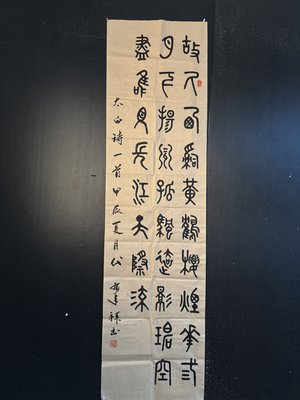 故人西辭黃鶴樓煙華弎
月下揚州孤颿遠影碧空
盡唯見長江天際流
太白詩一首甲辰夏月
書